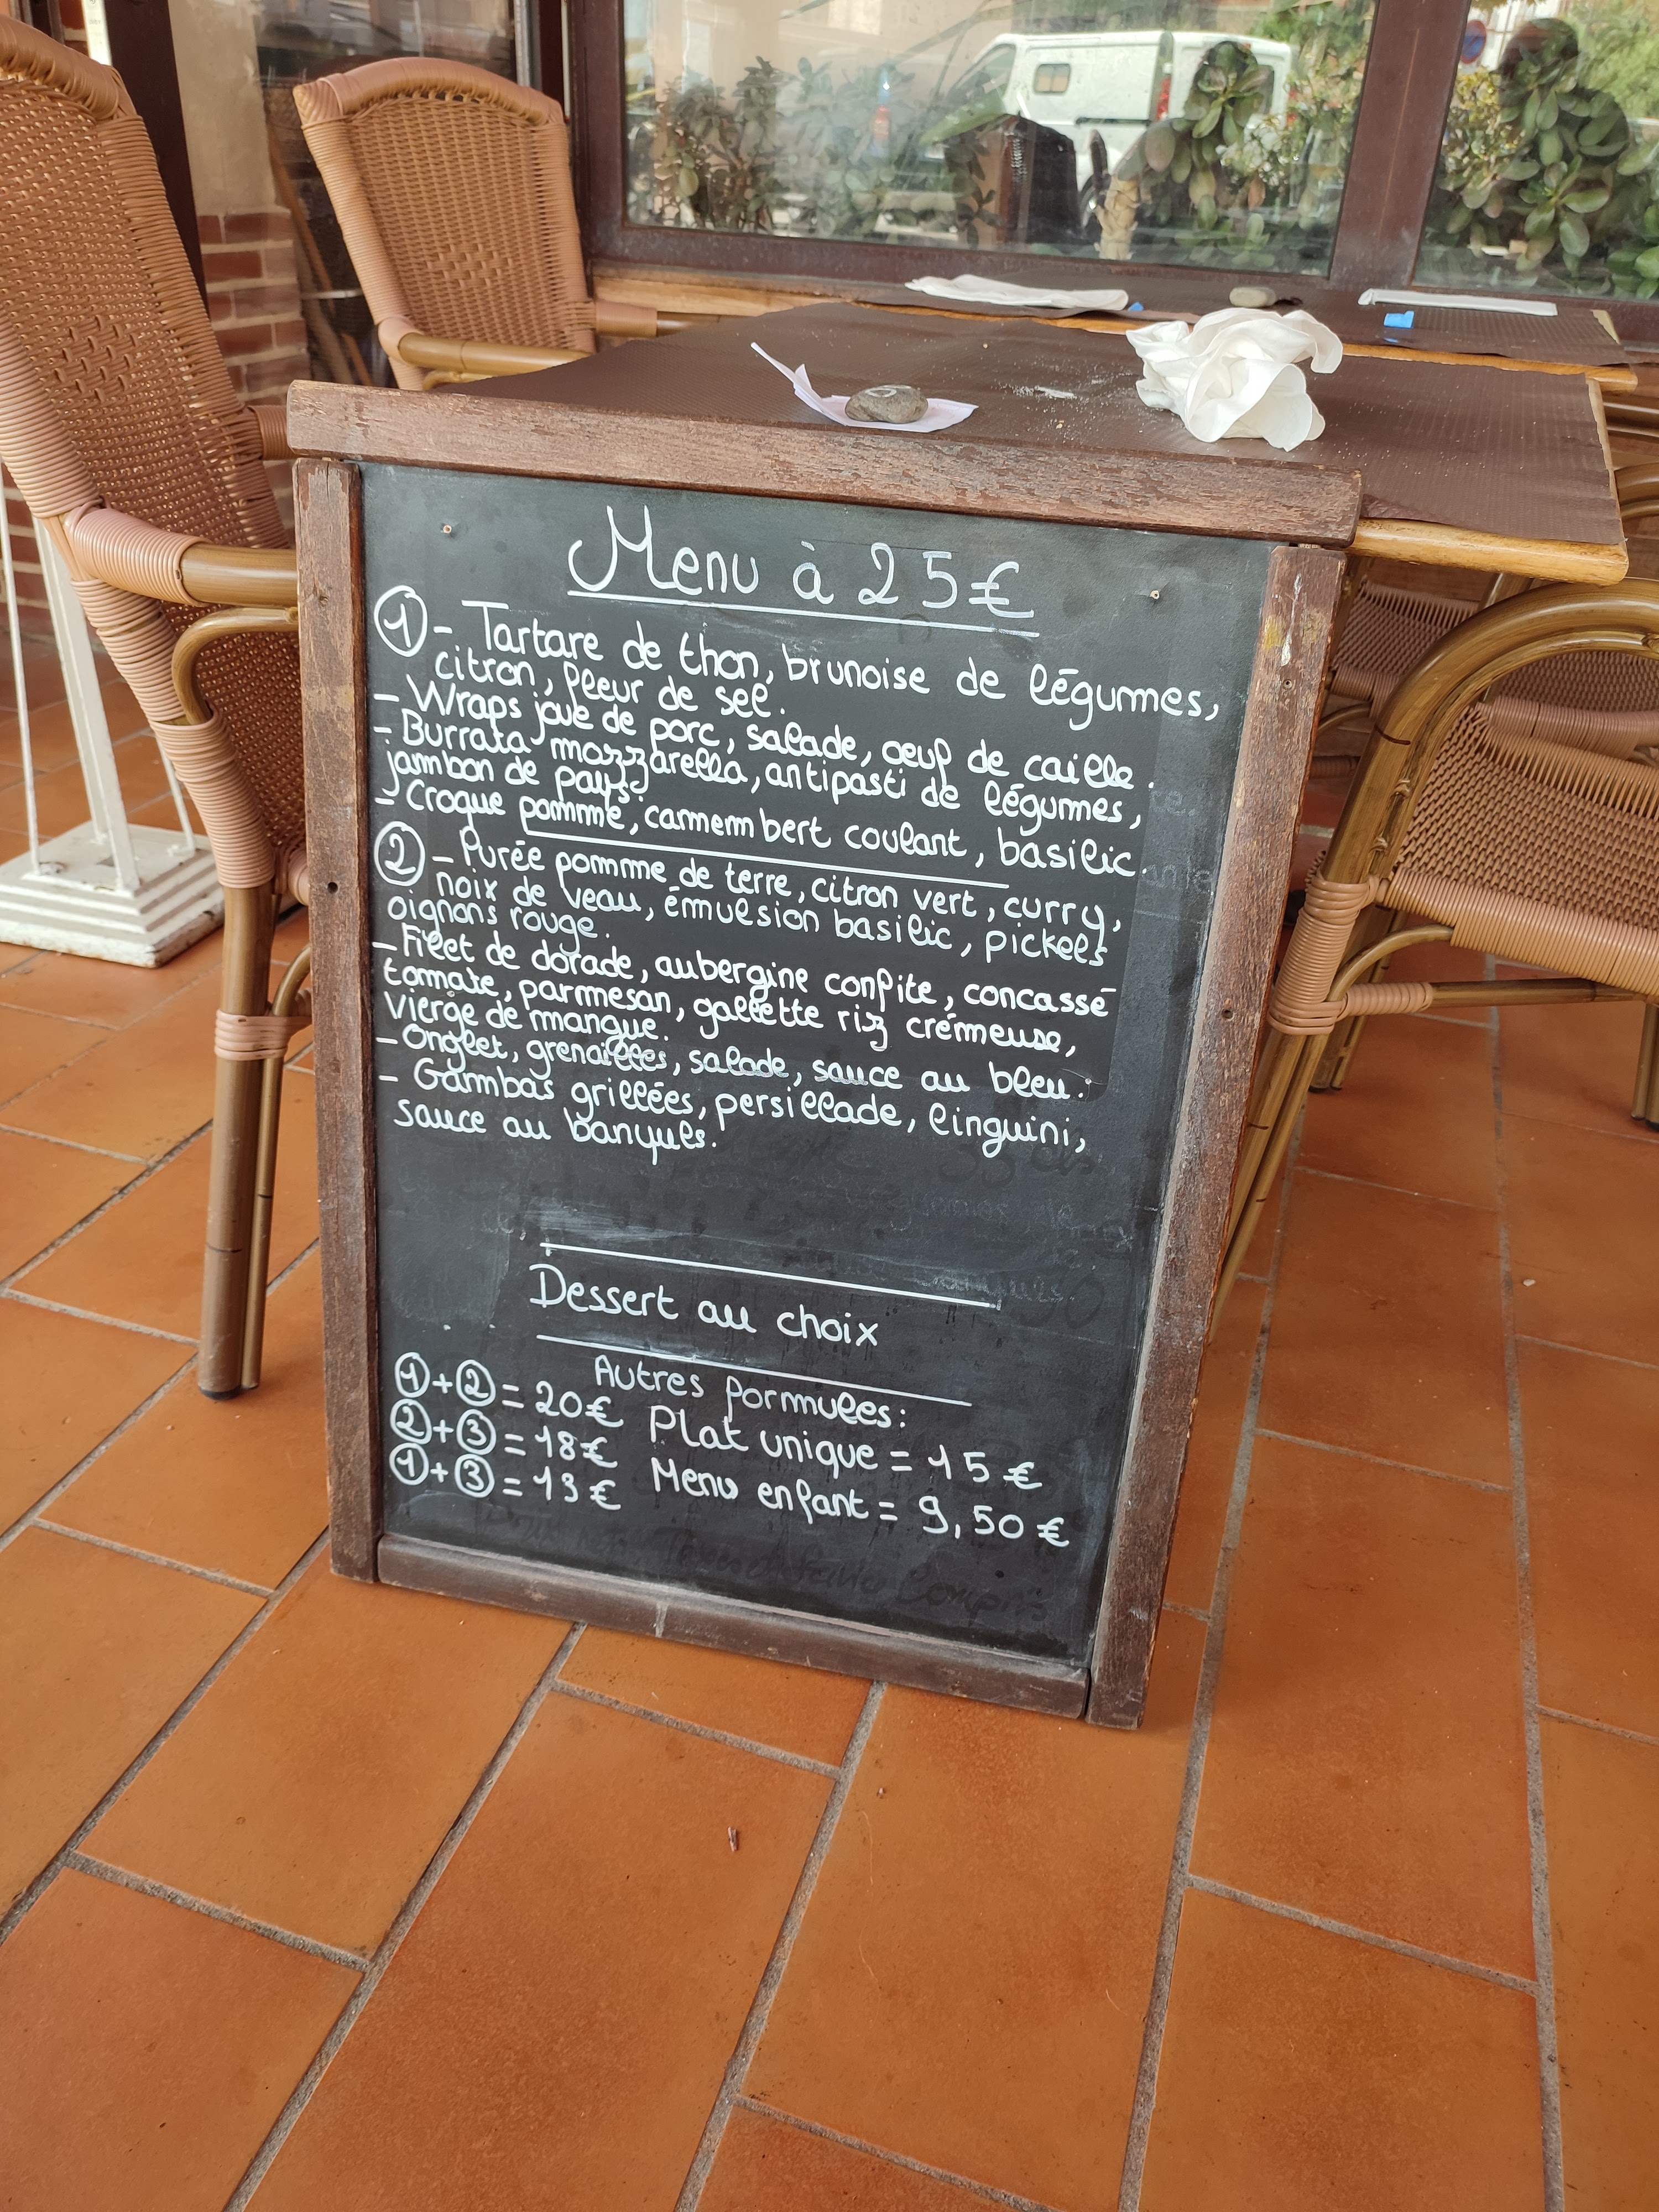 Menu à 25€
① - Tartare de thon, brunoise de légumes,
citron, fleur de sel.
- Wraps joue de porc, salade, oeuf de caille.
- Burrata mozzarella, antipasti de légumes,
jambon de pays.
- Croque pomme, camembert coulant, basilic.
② - Purée pomme de terre, citron vert, curry,
noix de veau, émulsion basilic, pickels
oignons rouge.
- Filet de dorade, aubergine confite, concassé
tomate, parmesan, gallette riz crémeuse,
vierge de mangue.
- Onglet, grenailles, salade, sauce au bleu.
- Gambas grillées, persillade, linguini,
sauce au banyuls.
Dessert au choix
Autres formules:
①+② = 20€ Plat unique = 15€
②+③ = 18€ Menu enfant = 9,50€
①+③ = 13€